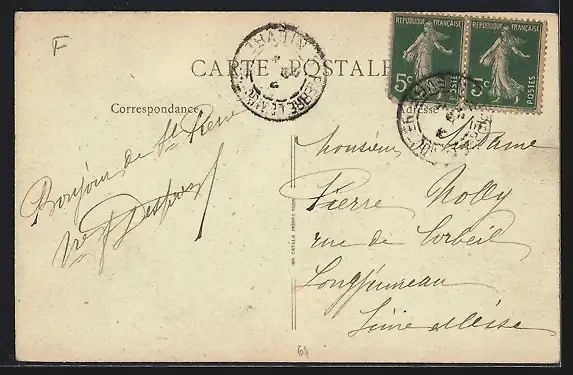 F
CARTE POSTALE
RÉPUBLIQUE FRANÇAISE
5c
POSTES
RÉPUBLIQUE FRANÇAISE
5c
POSTES
Correspondance
Adresse
Bonjour de St Pierre
Monsieur Madame
Pierre Nolly
rue de Corbeil
Longjumeau
Seine et Oise
64